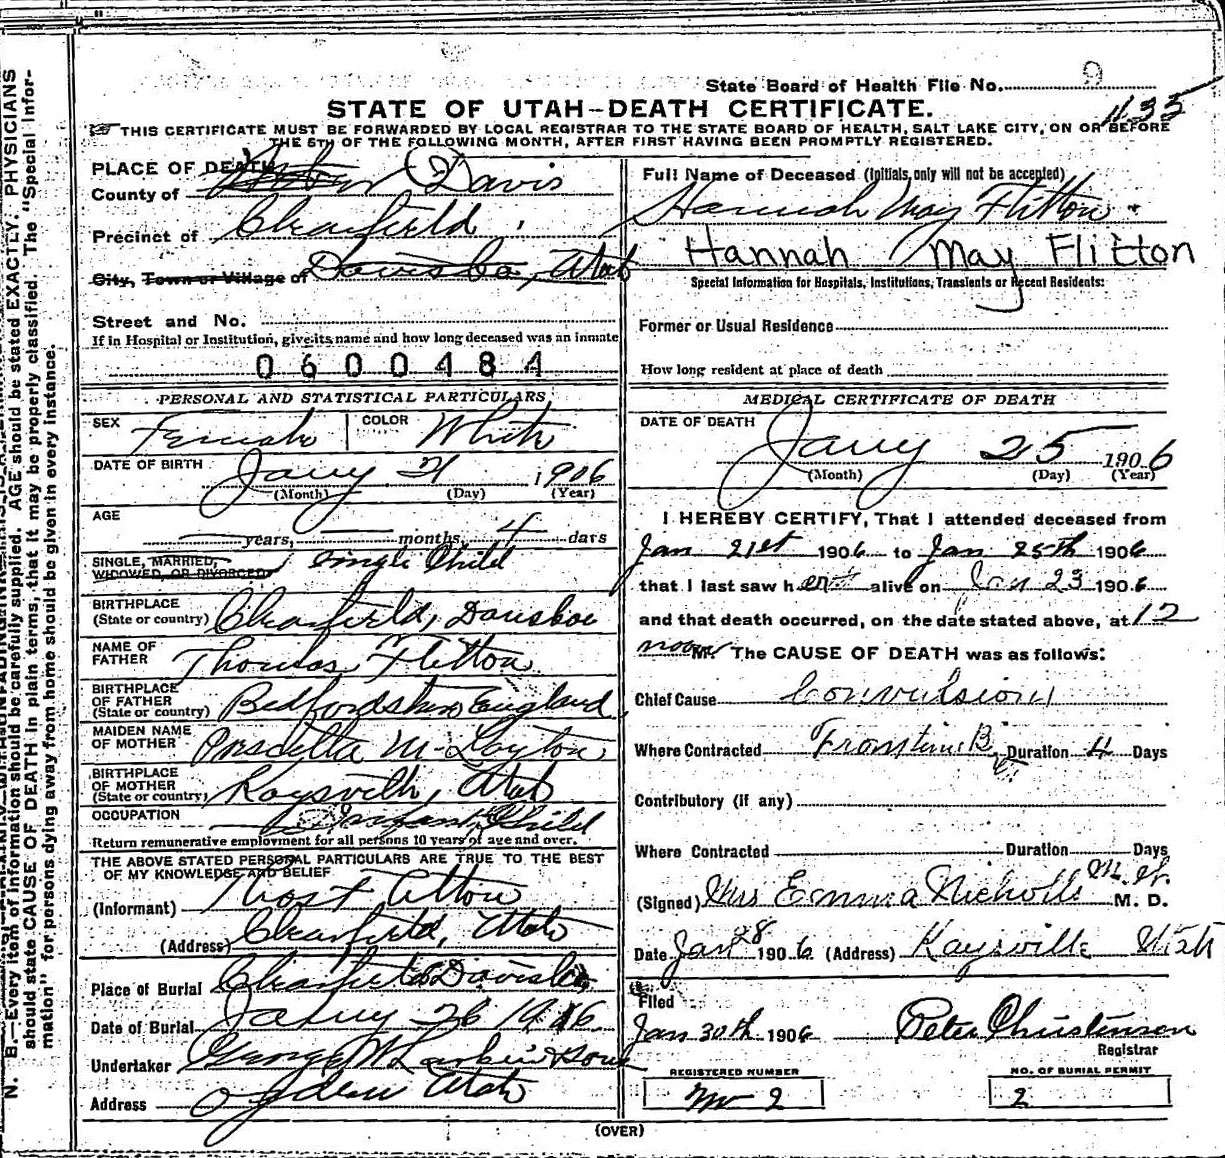 State Board of Health File No. 9
1135
STATE OF UTAH—DEATH CERTIFICATE.
THIS CERTIFICATE MUST BE FORWARDED BY LOCAL REGISTRAR TO THE STATE BOARD OF HEALTH, SALT LAKE CITY, ON OR BEFORE
THE 5TH OF THE FOLLOWING MONTH, AFTER FIRST HAVING BEEN PROMPTLY REGISTERED.
PLACE OF DEATH
County of Davis
Precinct of Clearfield
City, Town or Village of Davis Co, Utah
Street and No.
If in Hospital or Institution, give its name and how long deceased was an inmate
0600484
PERSONAL AND STATISTICAL PARTICULARS
SEX Female COLOR White
DATE OF BIRTH Jany 21 1906
(Month) (Day) (Year)
AGE
years, months, 4 days
SINGLE, MARRIED, WIDOWED, OR DIVORCED Single Child
BIRTHPLACE (State or country) Clearfield, Davis Co
NAME OF FATHER Thomas Flitton
BIRTHPLACE OF FATHER (State or country) Bedfordshire England
MAIDEN NAME OF MOTHER Priscilla M. Layton
BIRTHPLACE OF MOTHER (State or country) Kaysville, Utah
OCCUPATION Infant Child
Return remunerative employment for all persons 10 years of age and over.
THE ABOVE STATED PERSONAL PARTICULARS ARE TRUE TO THE BEST
OF MY KNOWLEDGE AND BELIEF
(Informant) Thos Flitton
(Address) Clearfield, Utah
Place of Burial Clearfield Davis Co
Date of Burial Jany 26 1906
Undertaker George W Larkin & Sons
Address Ogden Utah
Full Name of Deceased (Initials, only will not be accepted)
Hannah May Flitton
Hannah May Flitton
Special Information for Hospitals, Institutions, Transients or Recent Residents:
Former or Usual Residence
How long resident at place of death
MEDICAL CERTIFICATE OF DEATH
DATE OF DEATH
Jany 25 1906
(Month) (Day) (Year)
I HEREBY CERTIFY, That I attended deceased from
Jan 21st 1906 to Jan 25th 1906
that I last saw her alive on Jan 23 1906
and that death occurred, on the date stated above, at 12
noon M. The CAUSE OF DEATH was as follows:
Chief Cause Convulsion
Where Contracted From time B Duration 4 Days
Contributory (if any)
Where Contracted Duration Days
(Signed) Mrs Emma Nicholls M. D.
Date Jan 28 1906 (Address) Kaysville Utah
Filed
Jan 30th 1906 Peter Christenson
Registrar
REGISTERED NUMBER NO. OF BURIAL PERMIT
No 2 2
(OVER)
N. B.—Every item of information should be carefully supplied. AGE should be stated EXACTLY. PHYSICIANS
should state CAUSE OF DEATH in plain terms, that it may be properly classified. The "Special Infor-
mation" for persons dying away from home should be given in every instance.